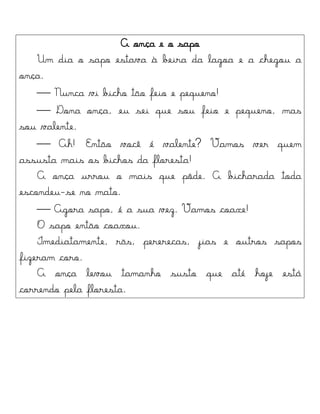 A onça e o sapo
Um dia o sapo estava à beira da lagoa e a chegou a
onça.
— Nunca vi bicho tão feio e pequeno!
— Dona onça, eu sei que sou feio e pequeno, mas
sou valente.
— Ah! Então você é valente? Vamos ver quem
assusta mais os bichos da floresta!
A onça urrou o mais que pôde. A bicharada toda
escondeu-se no mato.
— Agora sapo, é a sua vez. Vamos coaxe!
O sapo então coaxou.
Imediatamente, rãs, pererecas, jias e outros sapos
fizeram coro.
A onça levou tamanho susto que até hoje está
correndo pela floresta.